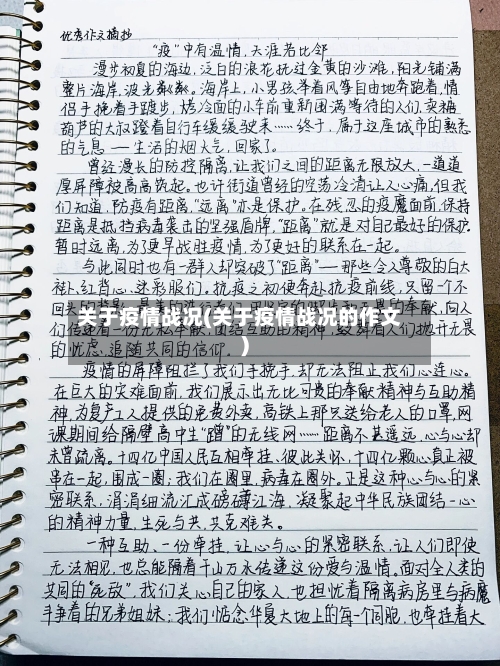 优秀作文摘抄
“疫”中有温情,天涯若比邻
漫步初夏的海边,泛白的浪花抚过金黄的沙滩,阳光铺满
整片海岸,波光粼粼。海岸上,小男孩举着风筝自由地奔跑着,情
侣手挽着手踱步,烤冷面的小车前重新围满等待的人们,卖糖
葫芦的大叔蹬着自行车缓缓驶来……终于,属于这座城市的熟悉
的气息——生活的烟火气,回家了。
曾经漫长的防控隔离,让我们之间的距离无限放大,一道道
厚屏障被高高筑起。也许街道曾经的空荡冷清让人心痛,但我
们知道,防疫有距离,“远离”亦是保护。在残忍的疫魔面前,保持
距离是抵挡病毒袭击的坚强盾牌,“距离”就是对自己最好的保护。
暂时远离,为了更早战胜疫情,为了更好的联系在一起。
与此同时也有一群人却突破了“距离”——那些令人尊敬的白大
褂,红背心,迷彩服们。抗疫之初便奔赴抗疫前线,只留一个不
回头的
奉献,向人
们传递着一份无私奉献团结互助的精神,
人们抛开无畏
的忧虑,追随共同的信仰。
关于疫情战况(关于疫情战况的作文
)
疫情的屏障阻拦了我们手挽手,却无法阻止我们心连心。
在巨大的灾难面前,我们展示出无比可贵的奉献精神与互助精
神,为复产工人提供的免费外卖,高铁上那只送给老人的口罩,网
课期间给隔壁高中生“蹭”的无线网……距离不甚遥远,心与心却
未曾疏离。十四亿中国人民互相牵挂、彼此关怀,十四亿颗心真正被
串在一起,围成一圈:我们在圈里,病毒在圈外。正是这种心与心的紧
密联系,涓涓细流汇成磅礴江海,凝聚起中华民族团结一心
的精神力量,生死与共,共克难关。
一种互助、一份牵挂,让心与心的紧密联系,让人们即使
无法相见,也总能隔着千山万水传递这份爱与温情。面对全人类的
共同的“死敌”,我们关心自己的家人,也担忧着隔离病房里与病魔
斗争着的兄弟姐妹;我们惦念华夏大地上的每一个同胞,也牵挂着大